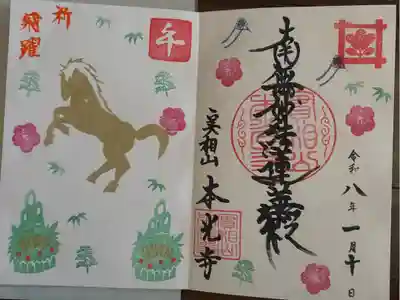 祈
飛躍
午
南無妙法蓮華経
令和八年一月十日
実相山
本光寺